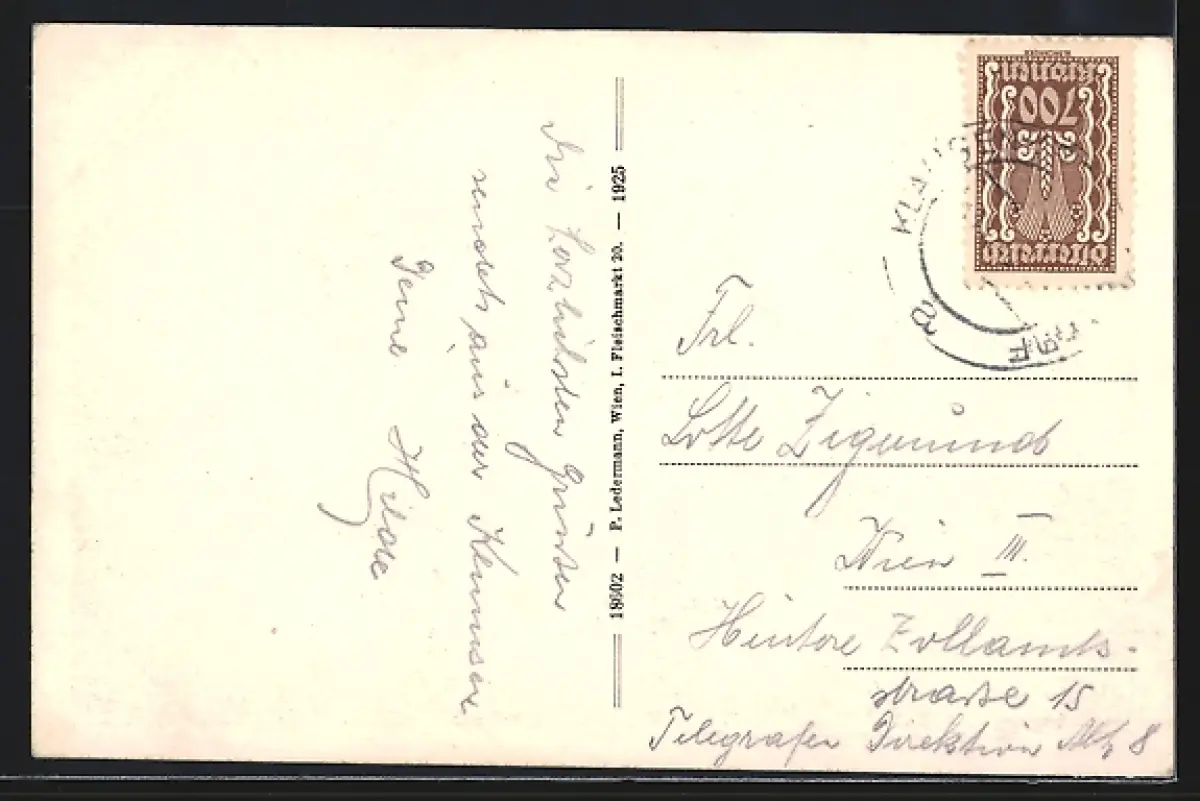 Die herzlichsten Grüsse
sendet aus der Klamm
Deine Hilde
18602 — P. Ledermann, Wien, I. Fleischmarkt 20. — 1925
700
Kronen
Österreich
Frl.
Lotte Zigmund
Wien III.
Hintere Zollamts-
strasse 15
Telegrafen Direktion Abt 8